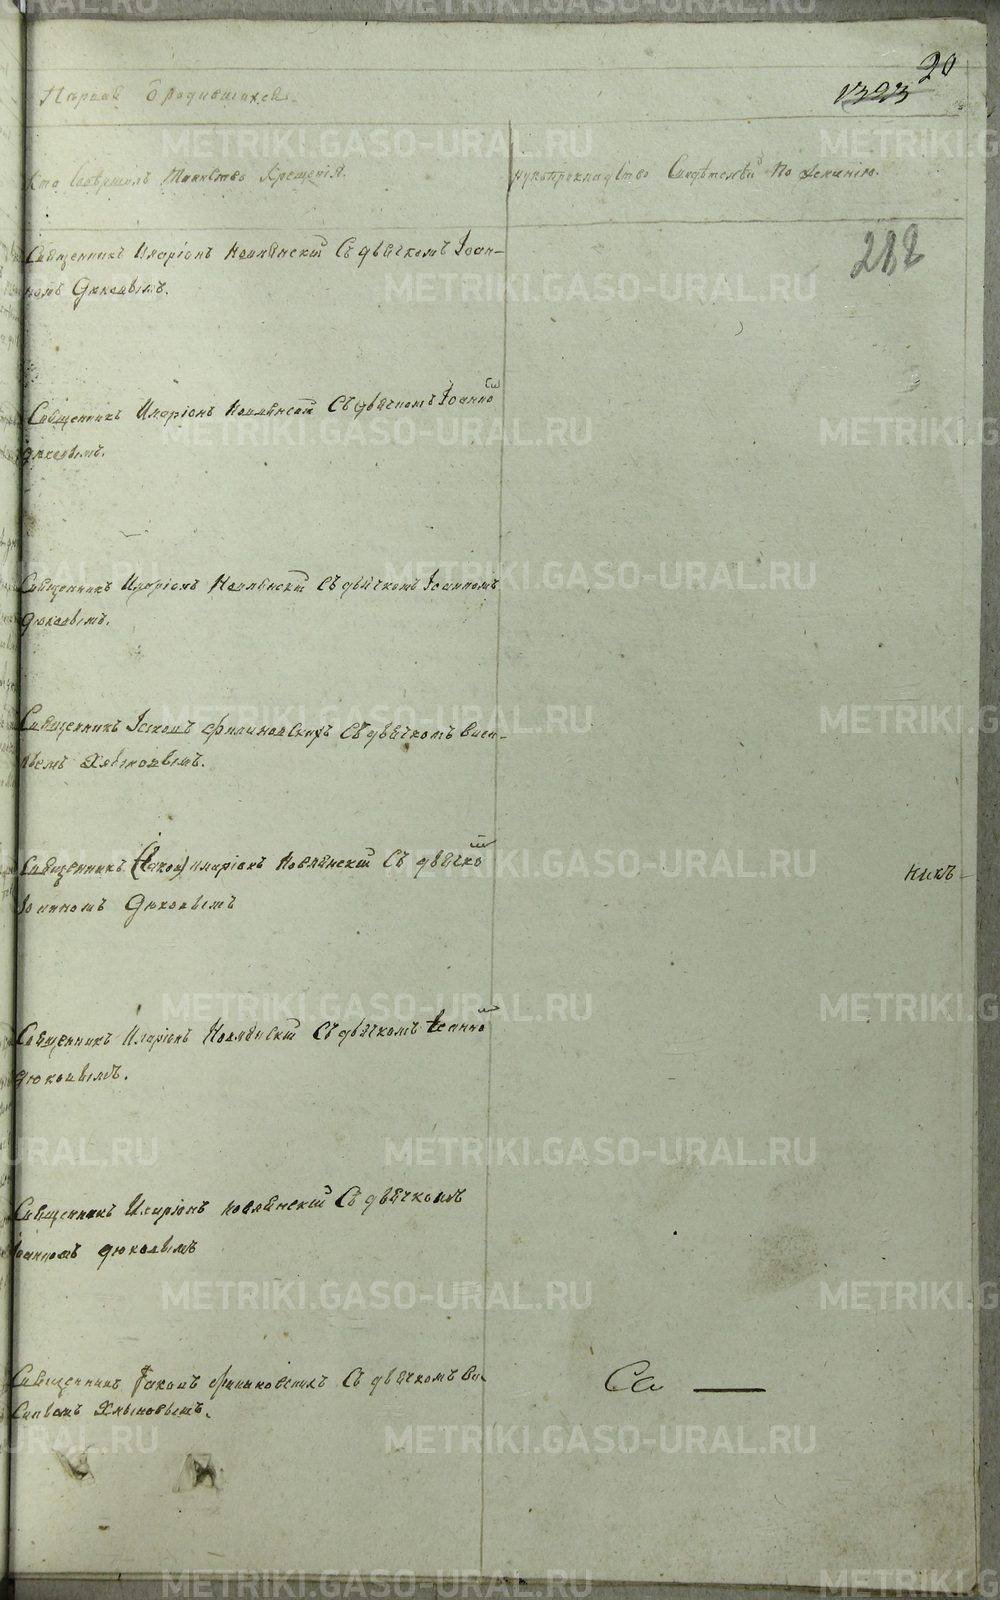 20
1323
Первая о родившихся.
Кто совершилъ Таинство Крещенія.
Рукоприкладство Свидѣтелей По желанію.
282
Священникъ Иларіонъ Новлянскій Съ дьячкомъ Іоан-
номъ Дюковымъ.
Священникъ Иларіонъ Новлянскій Съ дьячкомъ Іоанно
Дюковымъ.
Священникъ Иларіонъ Новлянскій Съ дьячкомъ Іоанномъ
Дюковымъ.
Священникъ Іаковъ Филиновскихъ Съ дьячкомъ Васи-
льемъ Хлыновымъ.
Священникъ (Іаков) Иларіонъ Новлянскій Съ дьячко
Іоанномъ Дюковымъ
никъ
Священникъ Иларіонъ Новлянскій Съ дьячкомъ Іоанно
Дюковымъ.
Священникъ Иларіонъ Новлянскій Съ дьячкомъ
Іоанномъ Дюковымъ
Священникъ Іаковъ Филиновскихъ Съ дьячкомъ Ва-
сильемъ Хлыновымъ.
Св —
METRIKI.GASO-URAL.RU